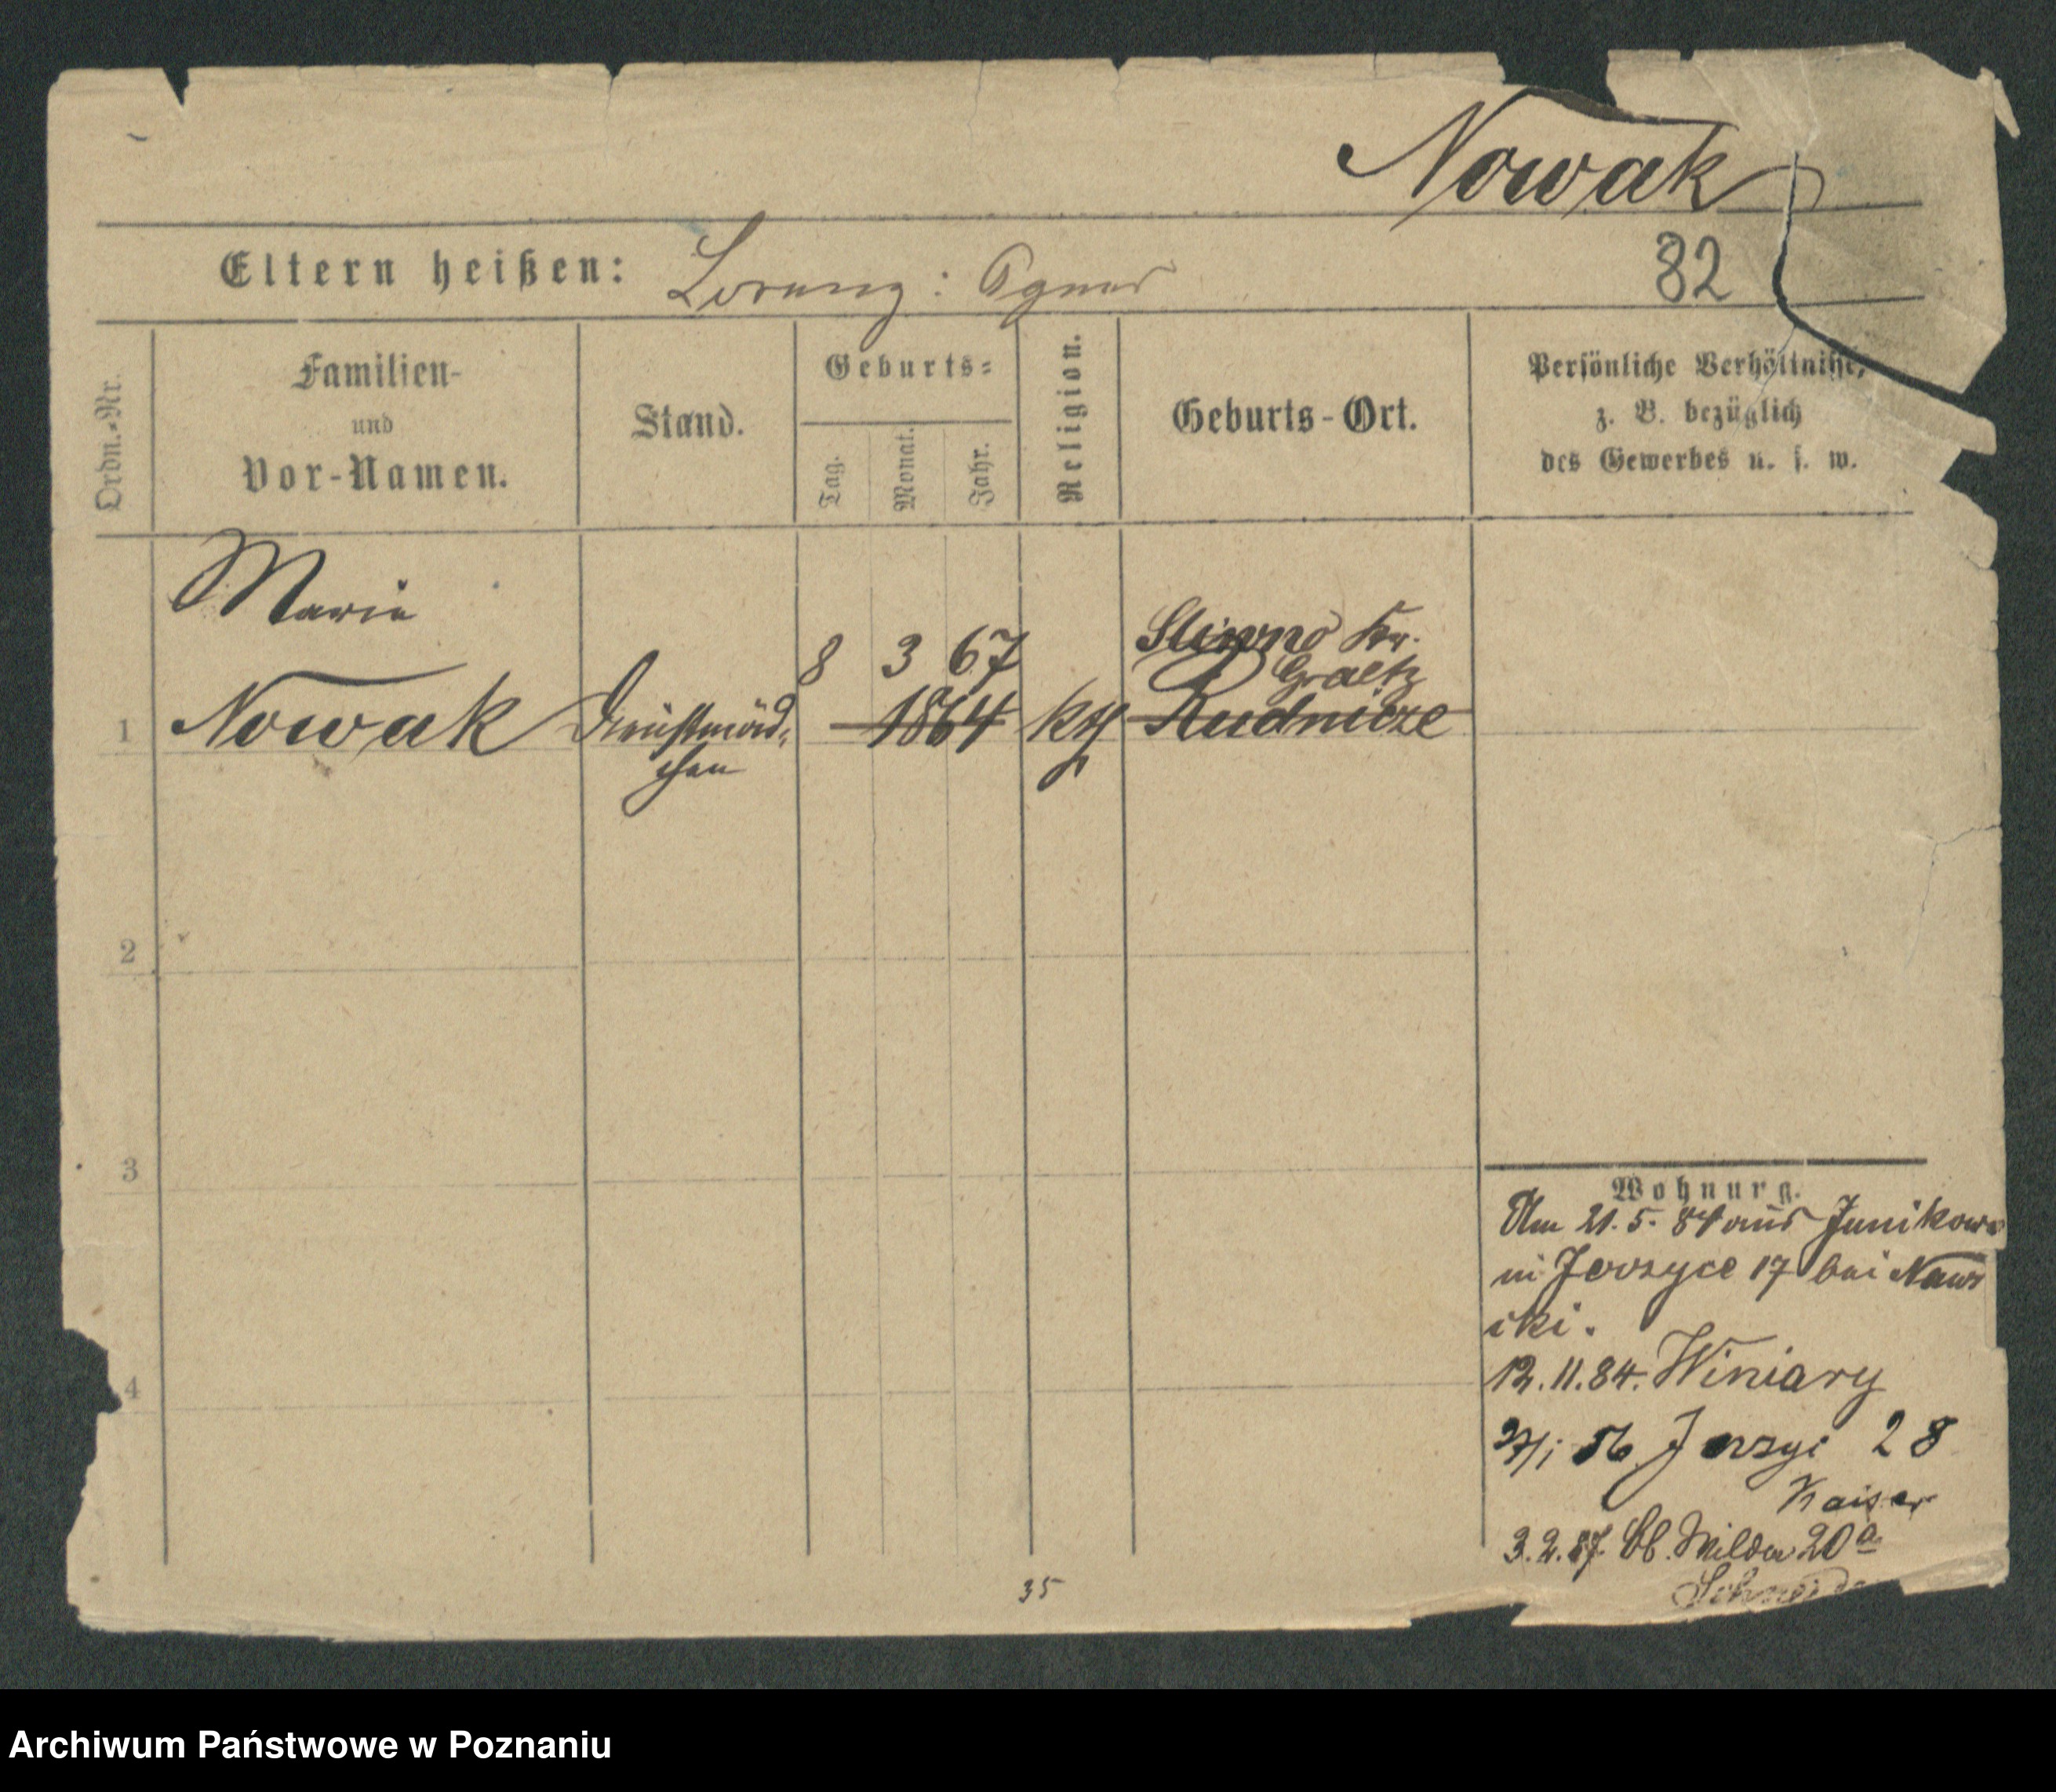 Nowak
32
Eltern heißen: Lorenz : Agnes
Ordn.-Nr.
Familien-
und
Vor-Namen.
Stand.
Geburts-
Tag.
Monat.
Jahr.
Religion.
Geburts-Ort.
Persönliche Verhältnisse,
z. B. bezüglich
des Gewerbes u. s. w.
Maria
Sliwno Kr.
8 3 67
Graetz
1 Nowak Dienstmäd- 1864 kth Rudnicze
chen
2
3
4
Wohnung.
Am 21.5.84 aus Junikowo
in Jerzyce 17 bei Naw
cki.
12.11.84. Winiary
Jerzyi 28
Kaiser
3.2.87. Ob. Wilda 20a
Schneider
35
Archiwum Państwowe w Poznaniu